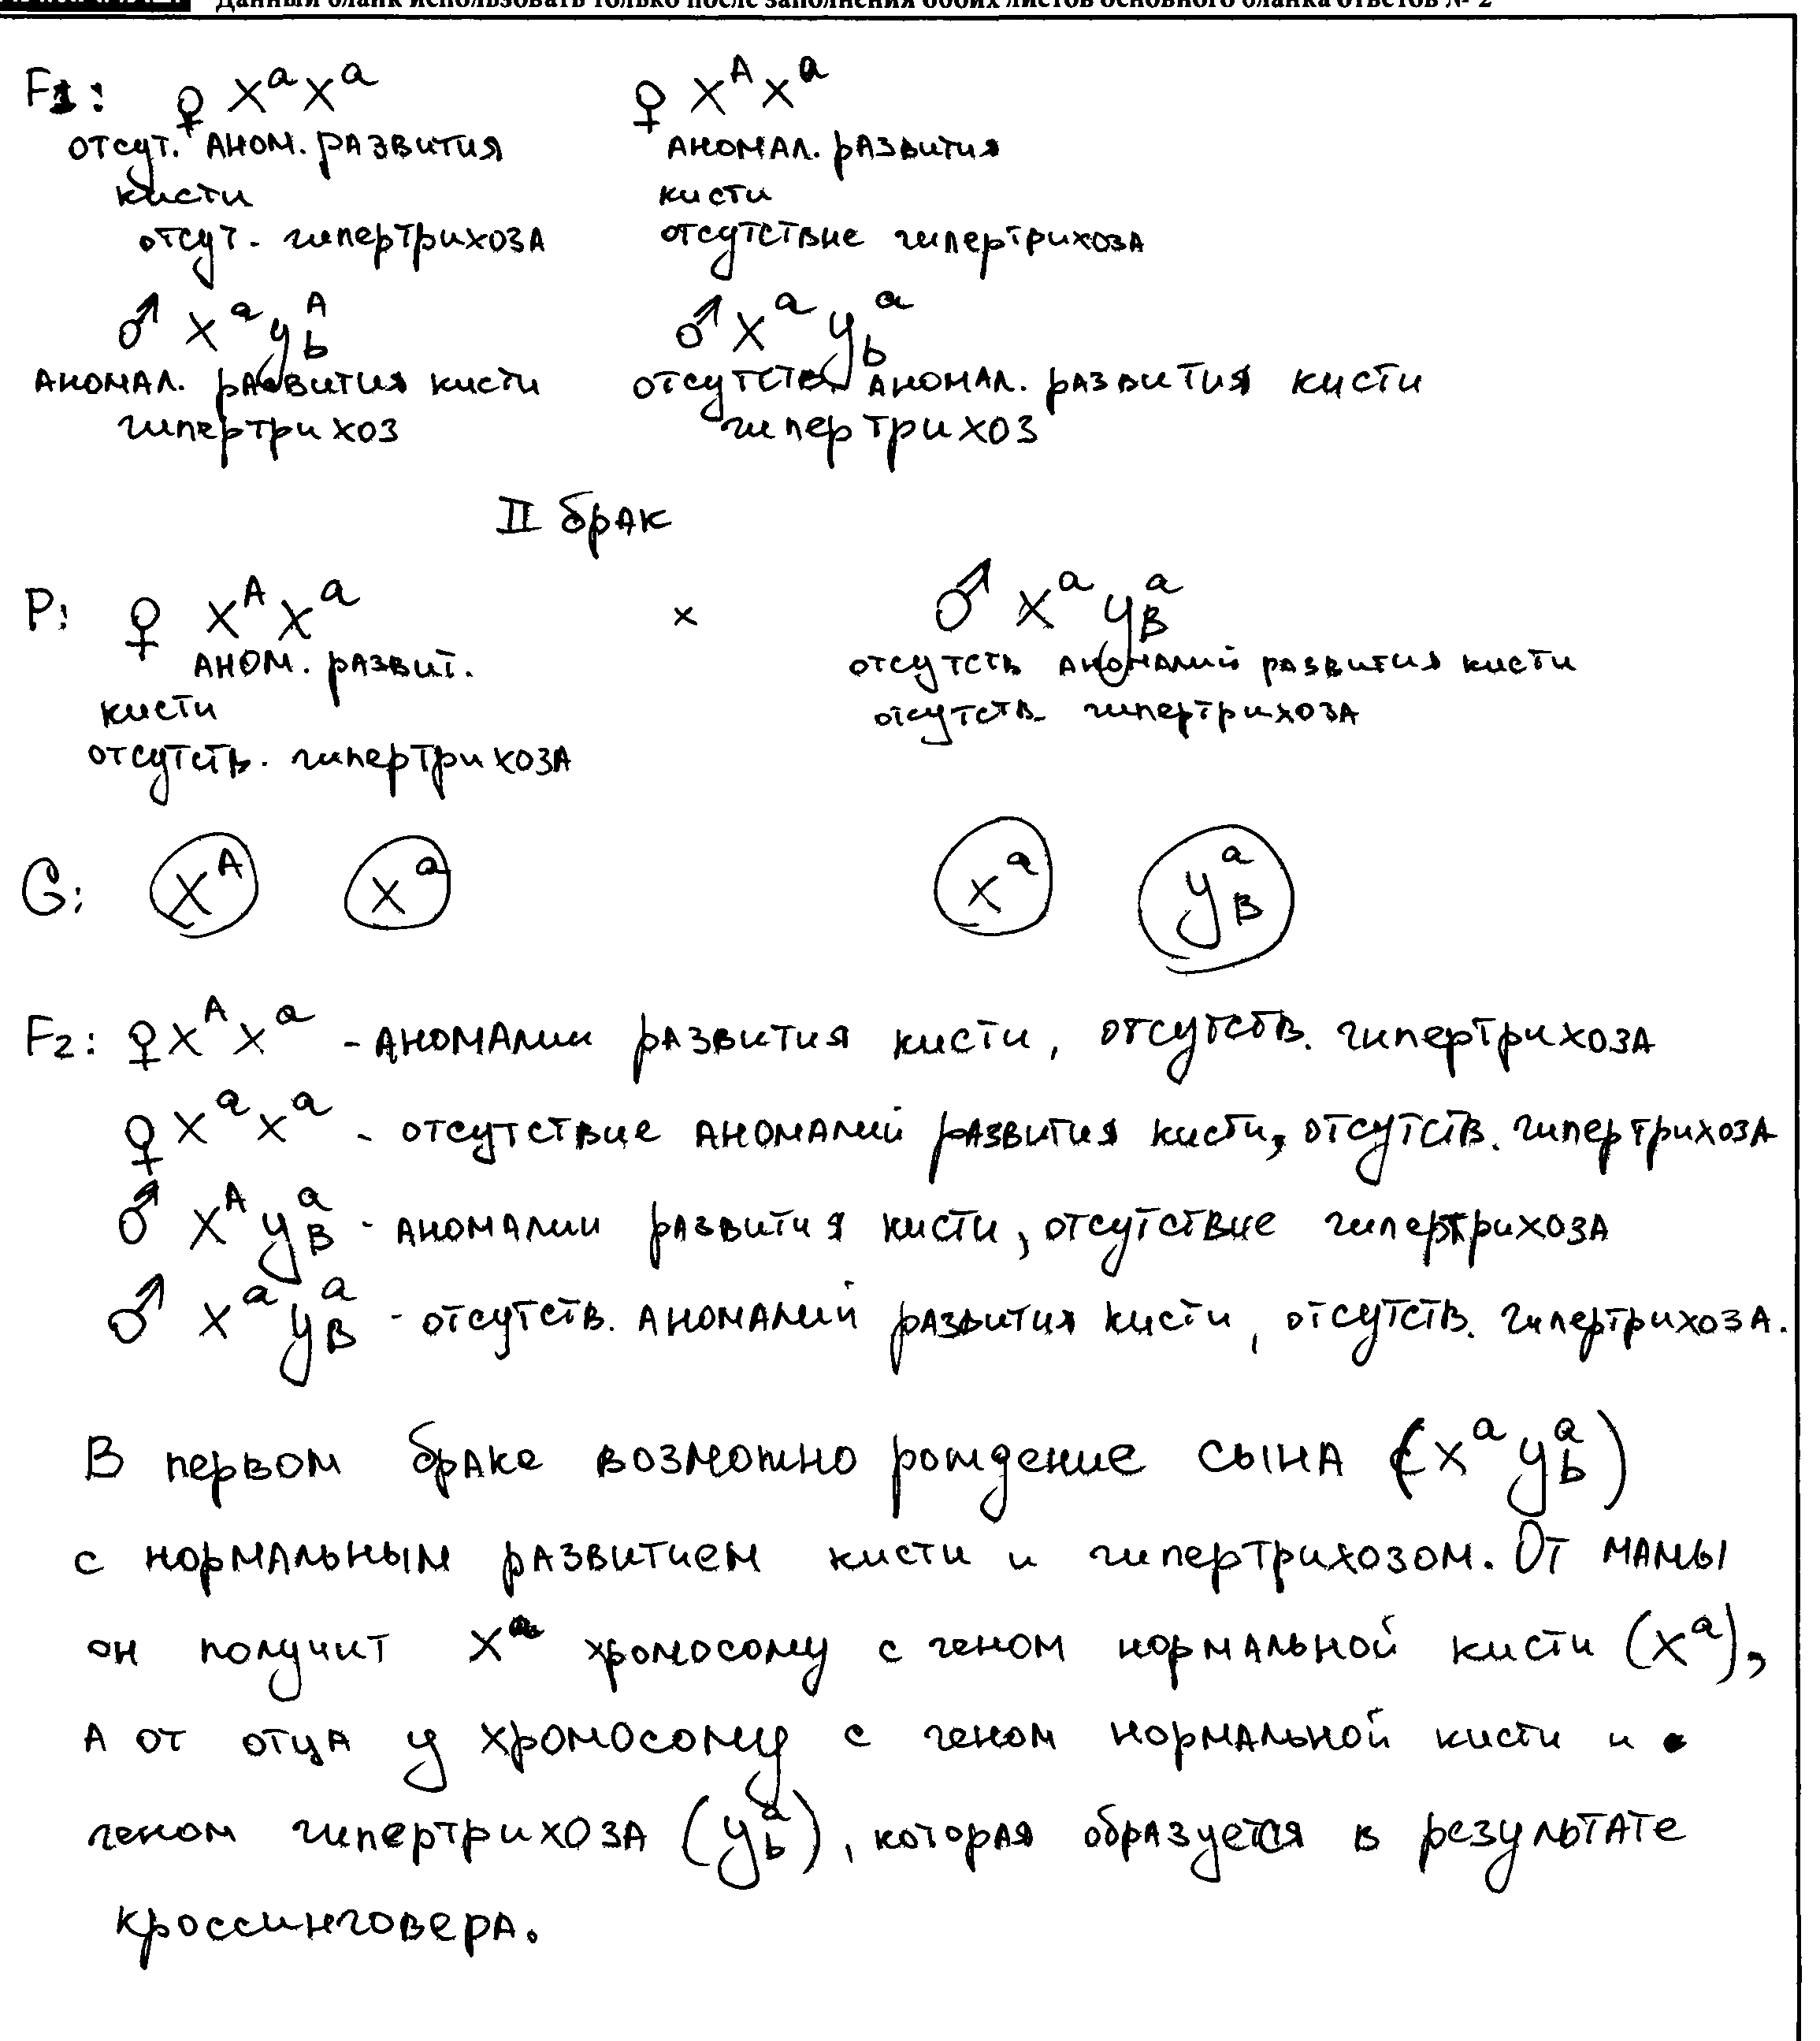 Данный бланк использовать только после заполнения обоих листов основного бланка ответов № 2
F1: ♀ XᵃXᵃ ♀ XᴬXᵃ
отсут. аном. развития аномал. развития
кисти кисти
отсут. гипертрихоза отсутствие гипертрихоза
♂ Xᵃ y_b^A ♂ Xᵃ y_b^a
аномал. развития кисти отсутств. аномал. развития кисти
гипертрихоз гипертрихоз
II брак
P: ♀ XᴬXᵃ × ♂ Xᵃ y_B^a
аном. развит. отсутств аномалий развития кисти
кисти отсутств. гипертрихоза
отсутств. гипертрихоза
G: Xᴬ Xᵃ Xᵃ y_B^a
F2: ♀ XᴬXᵃ - аномалии развития кисти, отсутств. гипертрихоза
♀ XᵃXᵃ - отсутствие аномалий развития кисти, отсутств. гипертрихоза
♂ Xᴬ y_B^a - аномалии развития кисти, отсутствие гипертрихоза
♂ Xᵃ y_B^a - отсутств. аномалий развития кисти, отсутств. гипертрихоза.
В первом браке возможно рождение сына (Xᵃ y_b^a)
с нормальным развитием кисти и гипертрихозом. От мамы
он получит Xᵃ хромосому с геном нормальной кисти (Xᵃ),
а от отца y хромосому с геном нормальной кисти и
геном гипертрихоза (y_b^a), которая образуется в результате
кроссинговера.